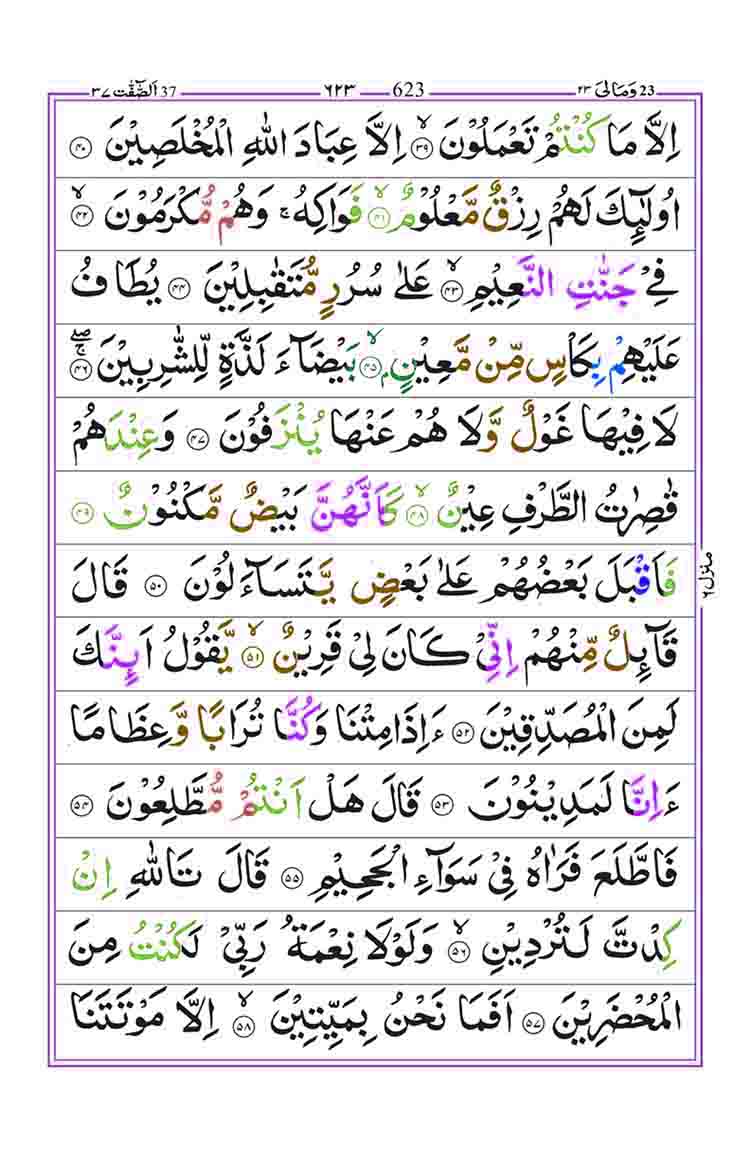 ٢٣ وَمَالِىَ 23 ٦٢٣ 623 ٣٧ اَلصّٰٓفّٰت 37
اِلَّا مَا كُنْتُمْ تَعْمَلُوْنَ ۙ‏﴿۳۹﴾ اِلَّا عِبَادَ اللّٰهِ الْمُخْلَصِيْنَ‏ ﴿۴۰﴾
اُولٰٓئِكَ لَهُمْ رِزْقٌ مَّعْلُوْمٌۙ‏ ﴿۴۱﴾ فَوَاكِهُ‌ۚ وَهُمْ مُّكْرَمُوْنَۙ‏ ﴿۴۲﴾
فِىْ جَنّٰتِ النَّعِيْمِۙ‏ ﴿۴۳﴾ عَلٰى سُرُرٍ مُّتَقٰبِلِيْنَ‏ ﴿۴۴﴾ يُطَافُ
عَلَيْهِمْ بِكَاْسٍ مِّنْ مَّعِيْنٍۢۙ‏ ﴿۴۵﴾ بَيْضَآءَ لَذَّةٍ لِّلشّٰرِبِيْنَ‌ ۖ‌ۚ‏ ﴿۴۶﴾
لَا فِيْهَا غَوْلٌ وَّلَا هُمْ عَنْهَا يُنْزَفُوْنَ‏ ﴿۴۷﴾ وَعِنْدَهُمْ
قٰصِرٰتُ الطَّرْفِ عِيْنٌۙ‏ ﴿۴۸﴾ كَاَنَّهُنَّ بَيْضٌ مَّكْنُوْنٌ‏ ﴿۴۹﴾
فَاَقْبَلَ بَعْضُهُمْ عَلٰى بَعْضٍ يَّتَسَآءَلُوْنَ‏ ﴿۵۰﴾ قَالَ
قَآئِلٌ مِّنْهُمْ اِنِّىْ كَانَ لِىْ قَرِيْنٌۙ‏ ﴿۵۱﴾ يَّقُوْلُ اَئِنَّكَ
لَمِنَ الْمُصَدِّقِيْنَ‏ ﴿۵۲﴾ ءَاِذَا مِتْنَا وَكُنَّا تُرَابًا وَّعِظَامًا
ءَاِنَّا لَمَدِيْنُوْنَ‏ ﴿۵۳﴾ قَالَ هَلْ اَنْتُمْ مُّطَّلِعُوْنَ‏ ﴿۵۴﴾
فَاطَّلَعَ فَرَاٰهُ فِىْ سَوَآءِ الْجَحِيْمِ‏ ﴿۵۵﴾ قَالَ تَاللّٰهِ اِنْ
كِدْتَّ لَتُرْدِيْنِۙ‏ ﴿۵۶﴾ وَلَوْلَا نِعْمَةُ رَبِّىْ لَكُنْتُ مِنَ
الْمُحْضَرِيْنَ‏ ﴿۵۷﴾ اَفَمَا نَحْنُ بِمَيِّتِيْنَۙ‏ ﴿۵۸﴾ اِلَّا مَوْتَتَنَا
منزل ٦